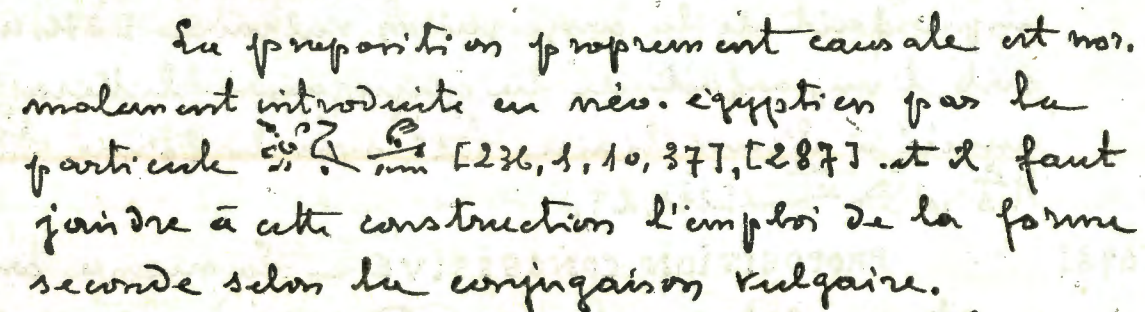 La preposition proprement causale est nor.
malement introduite en néo. égyptien par la
particule [236, 1, 10, 37], [287] . et il faut
joindre à cette construction l'emploi de la forme
seconde selon la conjugaison vulgaire.